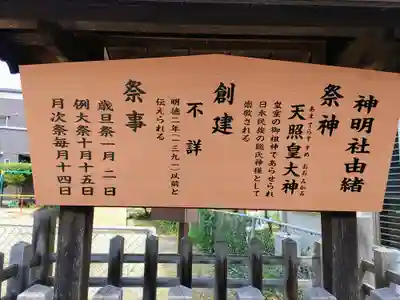 神明社由緒
祭神
あまてらすすめ おおみかみ
天照皇大神
皇室の御祖神であらせられ
日本民族の総氏神様として
崇敬される
創建
不詳
明徳二年(一三九一)以前と
伝えられる
祭事
歳旦祭一月二日
例大祭十月十五日
月次祭毎月十四日